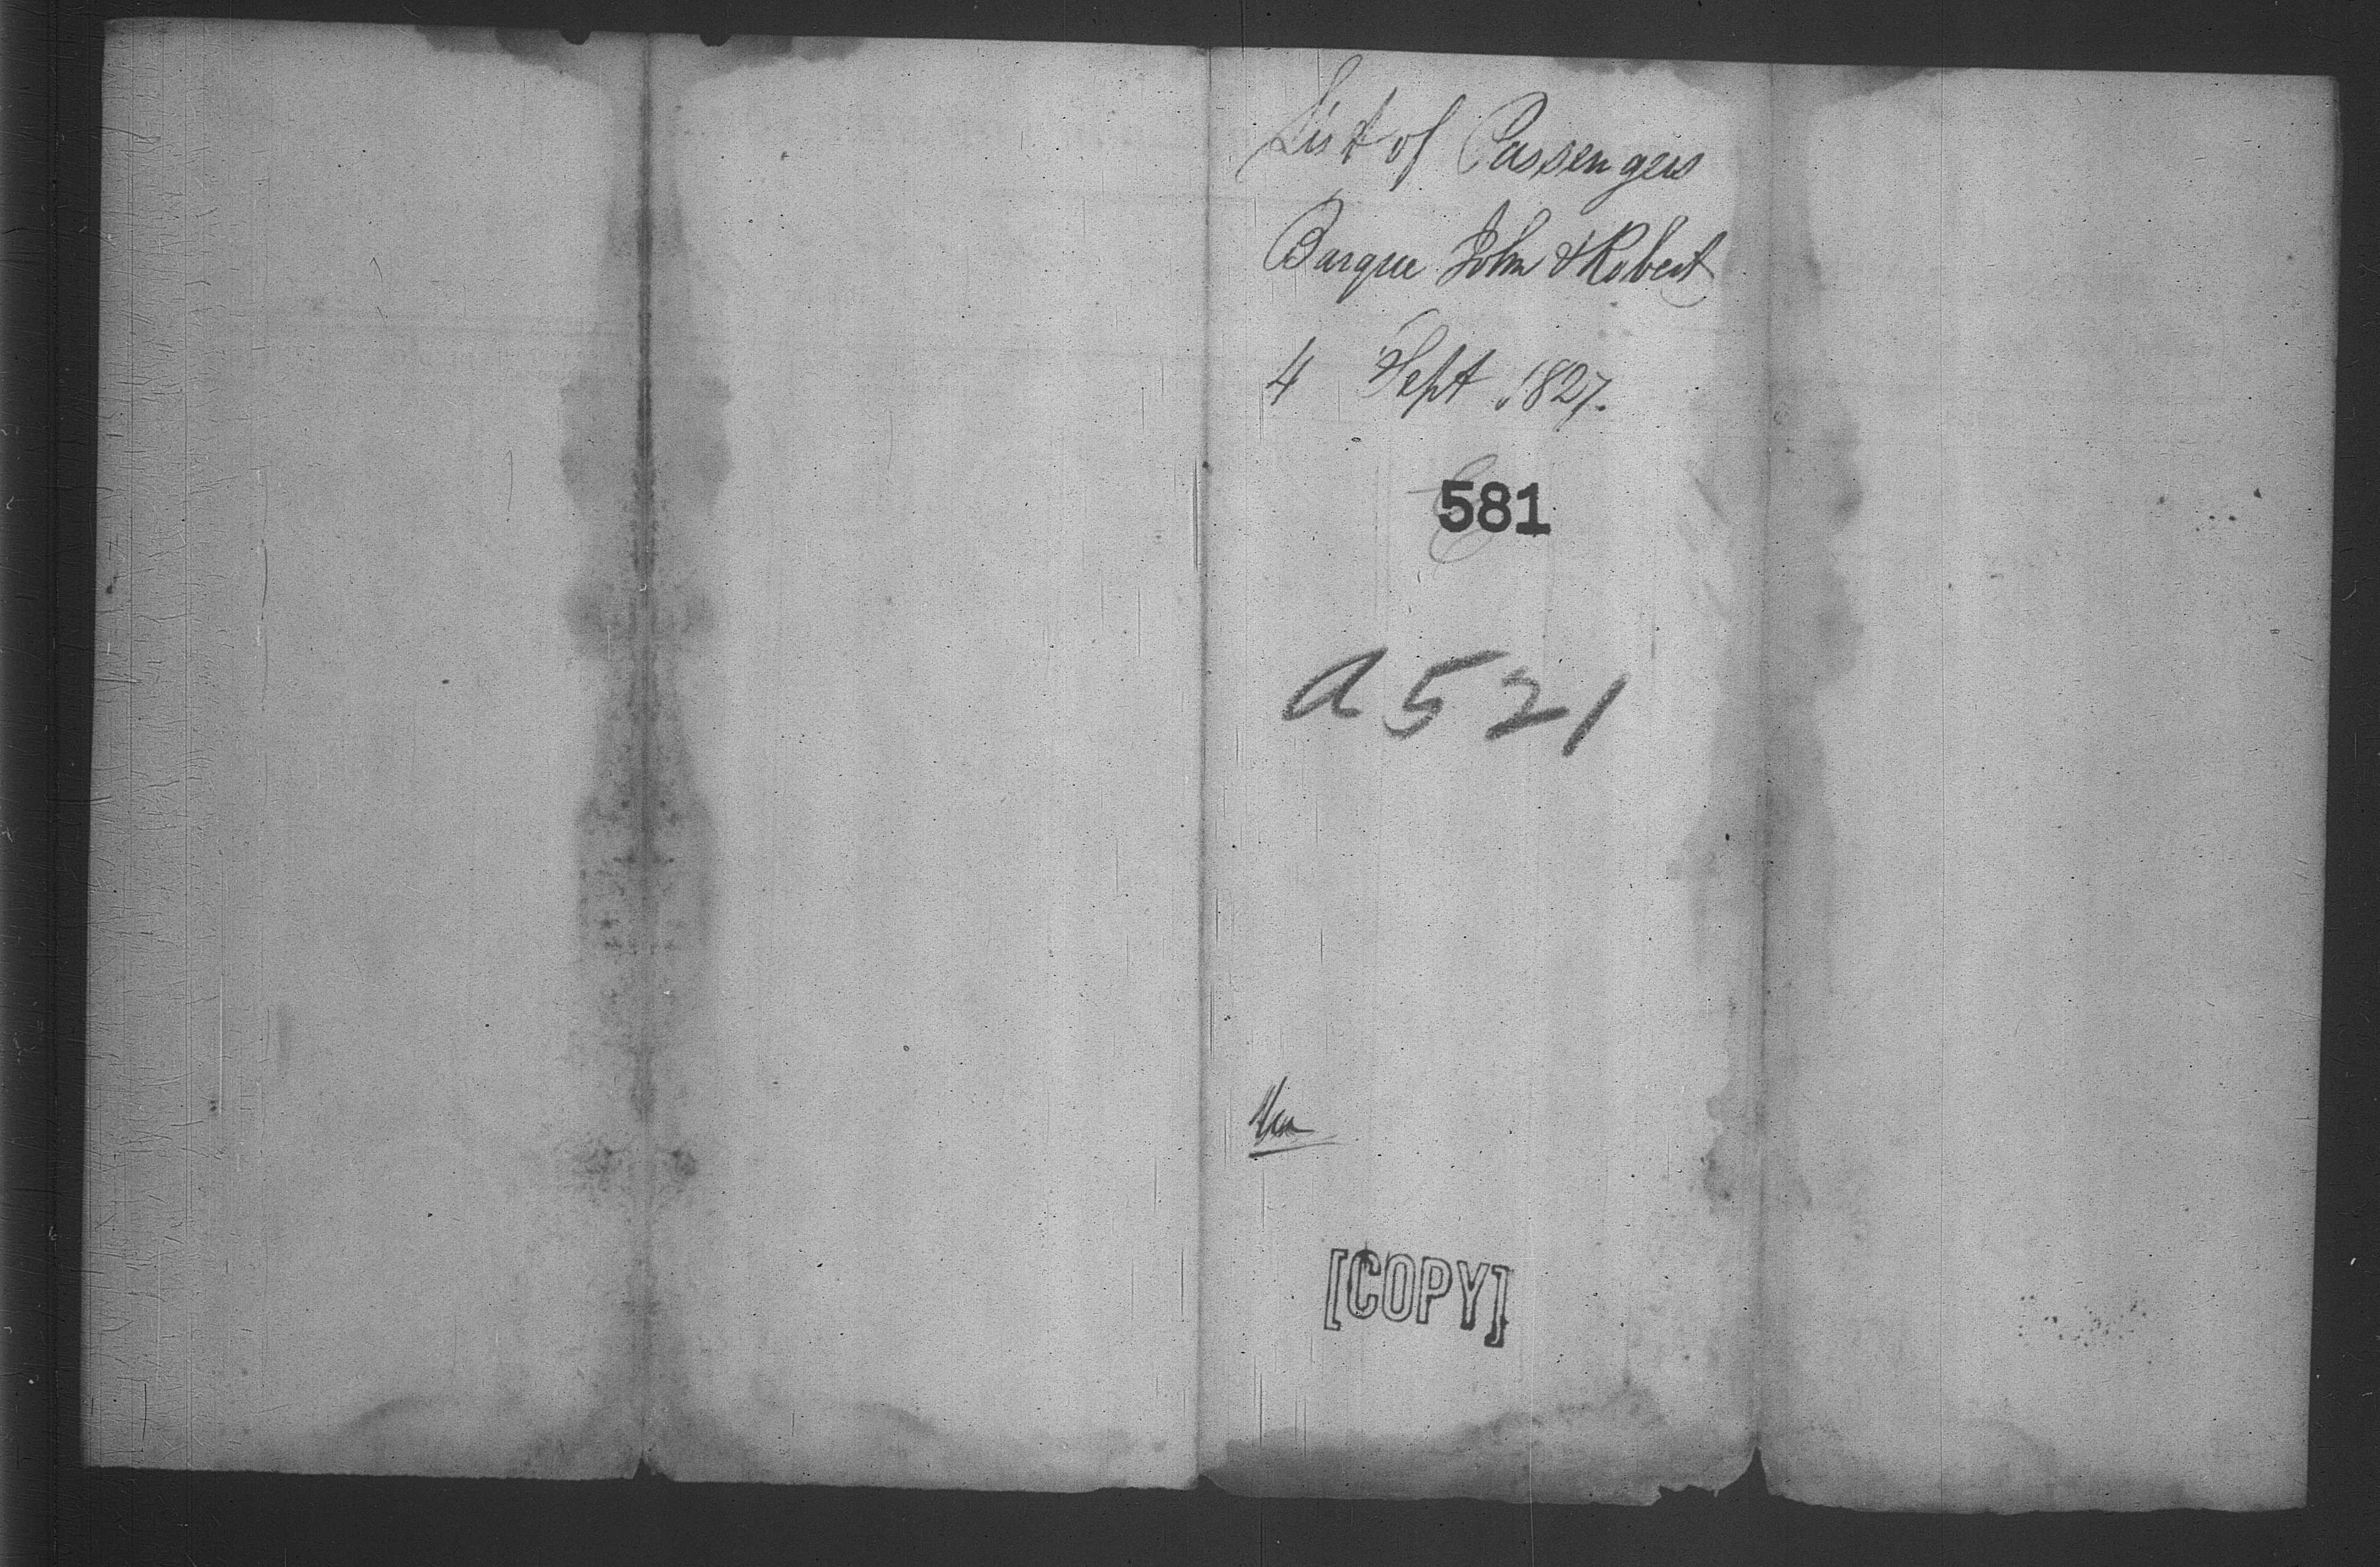 List of Passengers
Barque John & Robert
4 Sept 1827.
581
a 521
[COPY]